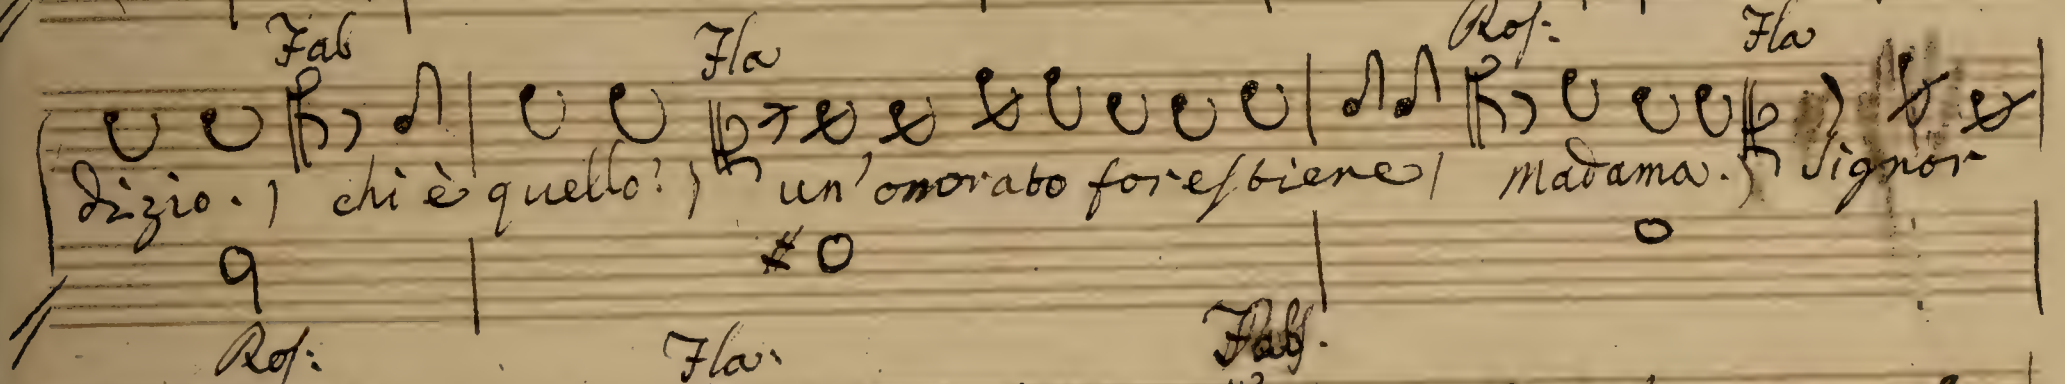 Fab Fla Ros: Fla
dizio. ) chi è quello? ) un' onorato forestiere ) Madama. ) Signor
Ros: Fla: